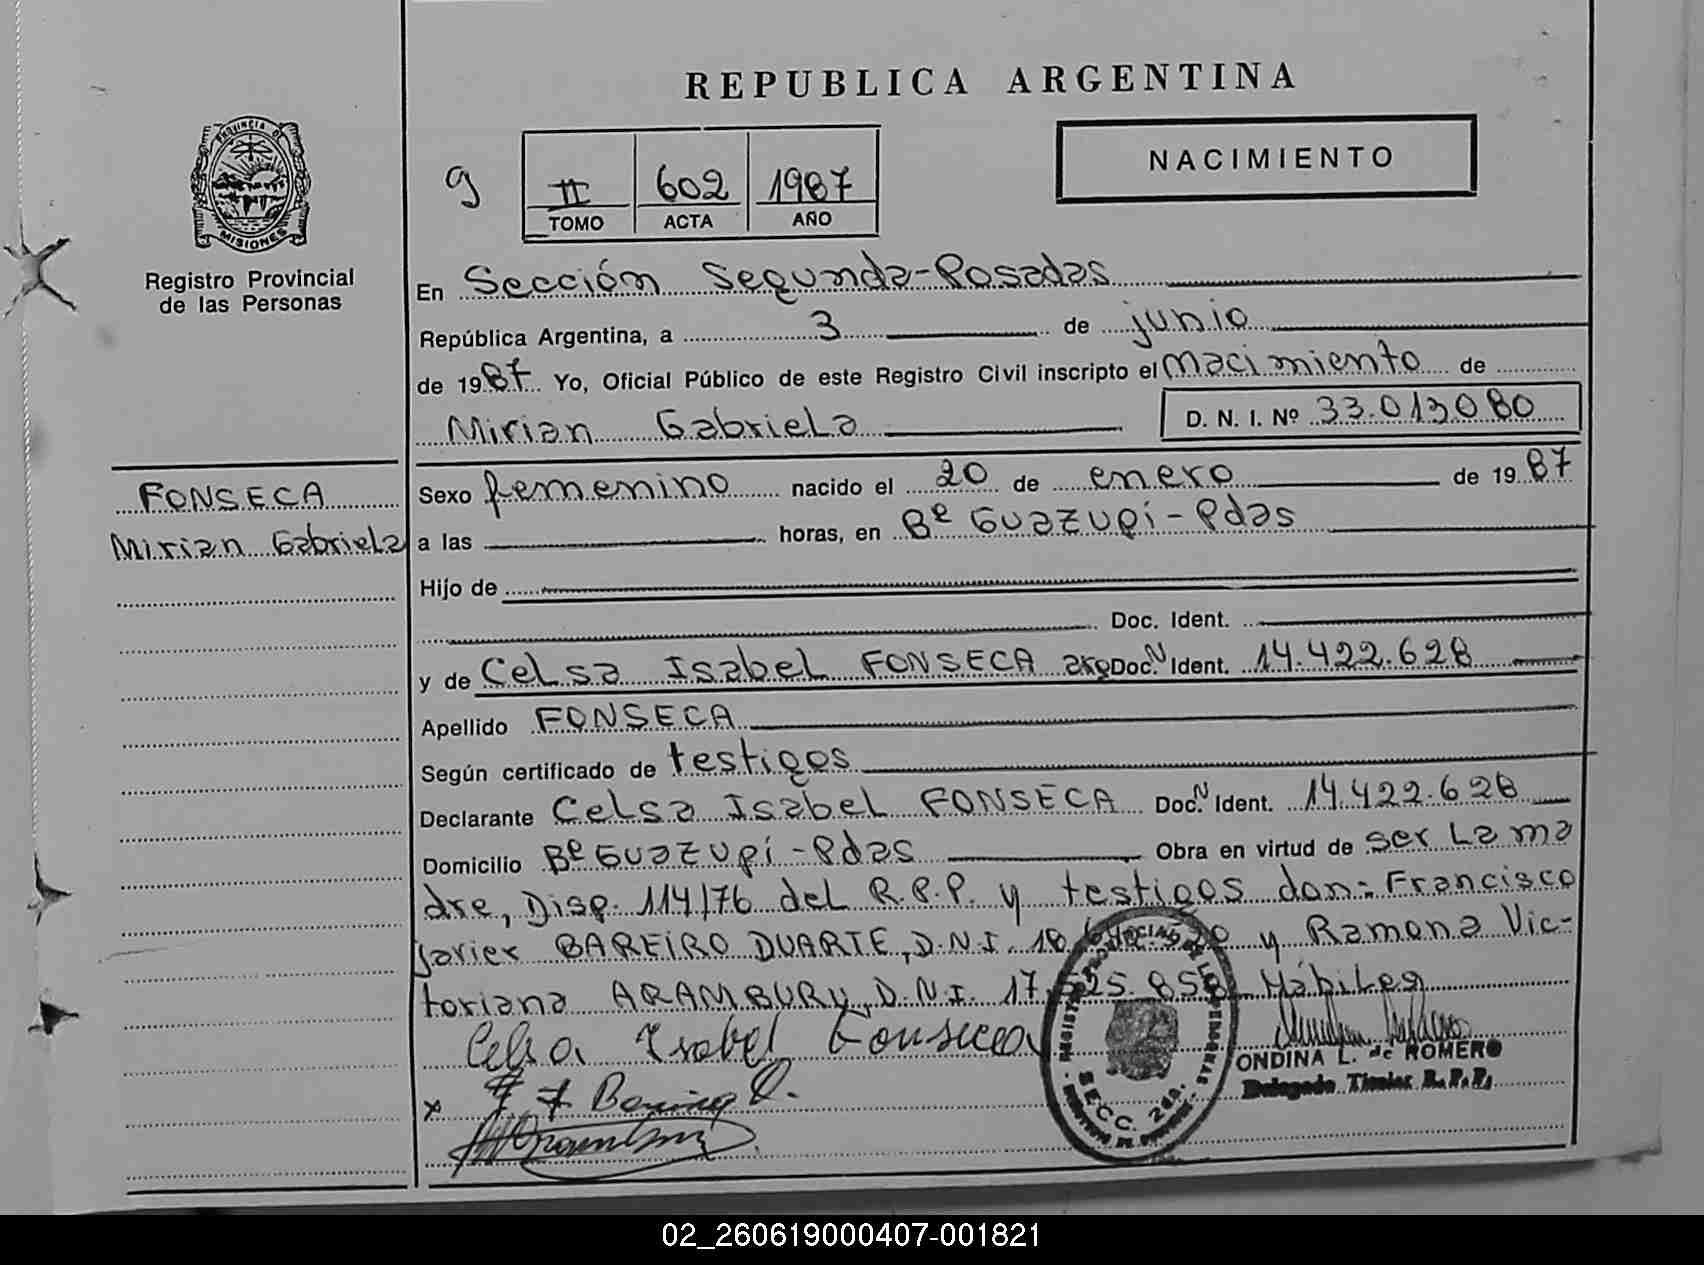 REPUBLICA ARGENTINA
PROVINCIA DE
MISIONES
Registro Provincial
de las Personas
9
II 602 1987
TOMO ACTA AÑO
NACIMIENTO
En Sección Segunda-Posadas
República Argentina, a 3 de junio
de 1987 Yo, Oficial Público de este Registro Civil inscripto el nacimiento de
Mirian Gabriela D. N. I. Nº 33.013080
FONSECA
Mirian Gabriela
Sexo femenino nacido el 20 de enero de 1987
a las horas, en Bº Guazupí-Pdas
Hijo de
Doc. Ident.
y de Celsa Isabel FONSECA arg Doc. N Ident. 14.422.628
Apellido FONSECA
Según certificado de testigos
Declarante Celsa Isabel FONSECA Doc. N Ident. 14.422.628
Domicilio Bº Guazupí-Pdas Obra en virtud de ser la ma
dre, Disp. 114/76 del R.P.P. y testigos don: Francisco
Javier BAREIRO DUARTE, D.N.I. 18 y Ramona Vic-
toriana ARAMBURU, D.N.I. 17.525.858 Hábiles
Celsa Isabel Fonseca
x
SECC. 2da.
ONDINA L. de ROMERO
Delegado Titular R.P.P.
02_260619000407-001821